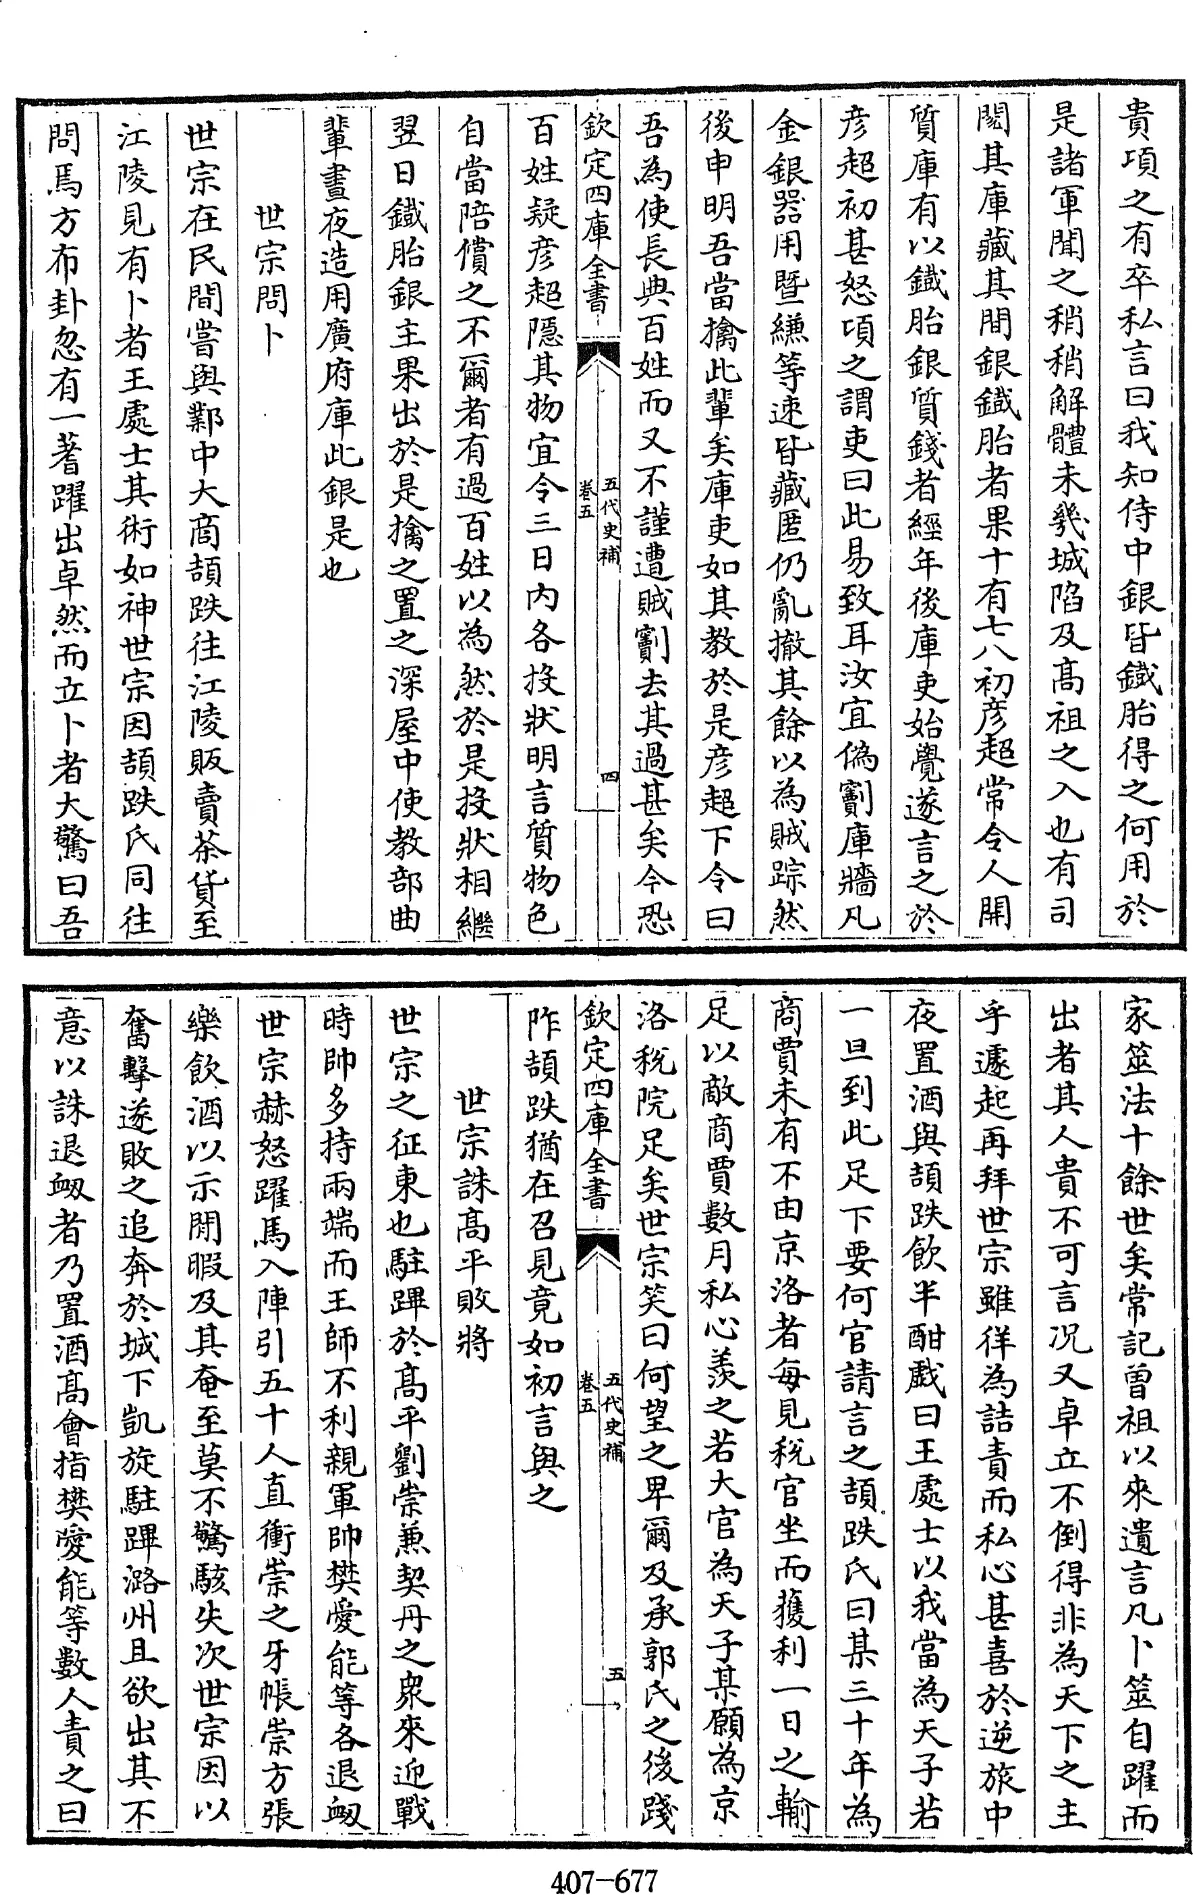 貴項之有卒私言曰我知侍中銀皆鐵胎得之何用於
是諸軍聞之稍稍解體未幾城陷及髙祖之入也有司
閱其庫藏其間銀鐵胎者果十有七八初彦超常令人開
質庫有以鐵胎銀質錢者經年後庫吏始覺遂言之於
彦超初甚怒項之謂吏曰此易致耳汝宜偽竇庫牆凡
金銀器用暨縑等速皆藏匿仍亂撤其餘以為賊踪然
後申明吾當擒此輩矣庫吏如其教於是彦超下令曰
吾為使長典百姓而又不謹遭賊劃去其過甚矣今恐
欽定四庫全書
五代史補
卷五
四
百姓疑彦超隱其物宜令三日内各投狀明言質物色
自當陪償之不爾者有過百姓以為然於是投狀相繼
翌日鐵胎銀主果出於是擒之置之深屋中使教部曲
輩晝夜造用廣府庫此銀是也
世宗問卜
世宗在民間嘗與鄴中大商頡跌往江陵販賣茶貨至
江陵見有卜者王處士其術如神世宗因頡跌氏同往
問焉方布卦忽有一蓍躍出卓然而立卜者大驚曰吾
家筮法十餘世矣常記曾祖以來遺言凡卜筮自躍而
出者其人貴不可言况又卓立不倒得非為天下之主
乎遽起再拜世宗雖徉為詰責而私心甚喜於逆旅中
夜置酒與頡跌飲半酣戲曰王處士以我當為天子若
一旦到此足下要何官請言之頡跌氏曰某三十年為
商賈未有不由京洛者每見稅官坐而獲利一日之輸
足以敵商賈數月私心羨之若大官為天子某願為京
洛稅院足矣世宗笑曰何望之卑爾及承郭氏之後踐
欽定四庫全書
五代史補
卷五
五
阼頡跌猶在召見竟如初言與之
世宗誅髙平敗將
世宗之征東也駐蹕於髙平劉崇兼契丹之衆來迎戰
時帥多持兩端而王師不利親軍帥樊愛能等各退衂
世宗赫怒躍馬入陣引五十人直衝崇之牙帳崇方張
樂飲酒以示閒暇及其奄至莫不驚駭失次世宗因以
奮擊遂敗之追奔於城下凱旋駐蹕潞州且欲出其不
意以誅退衂者乃置酒髙會指樊愛能等數人責之曰
407-677